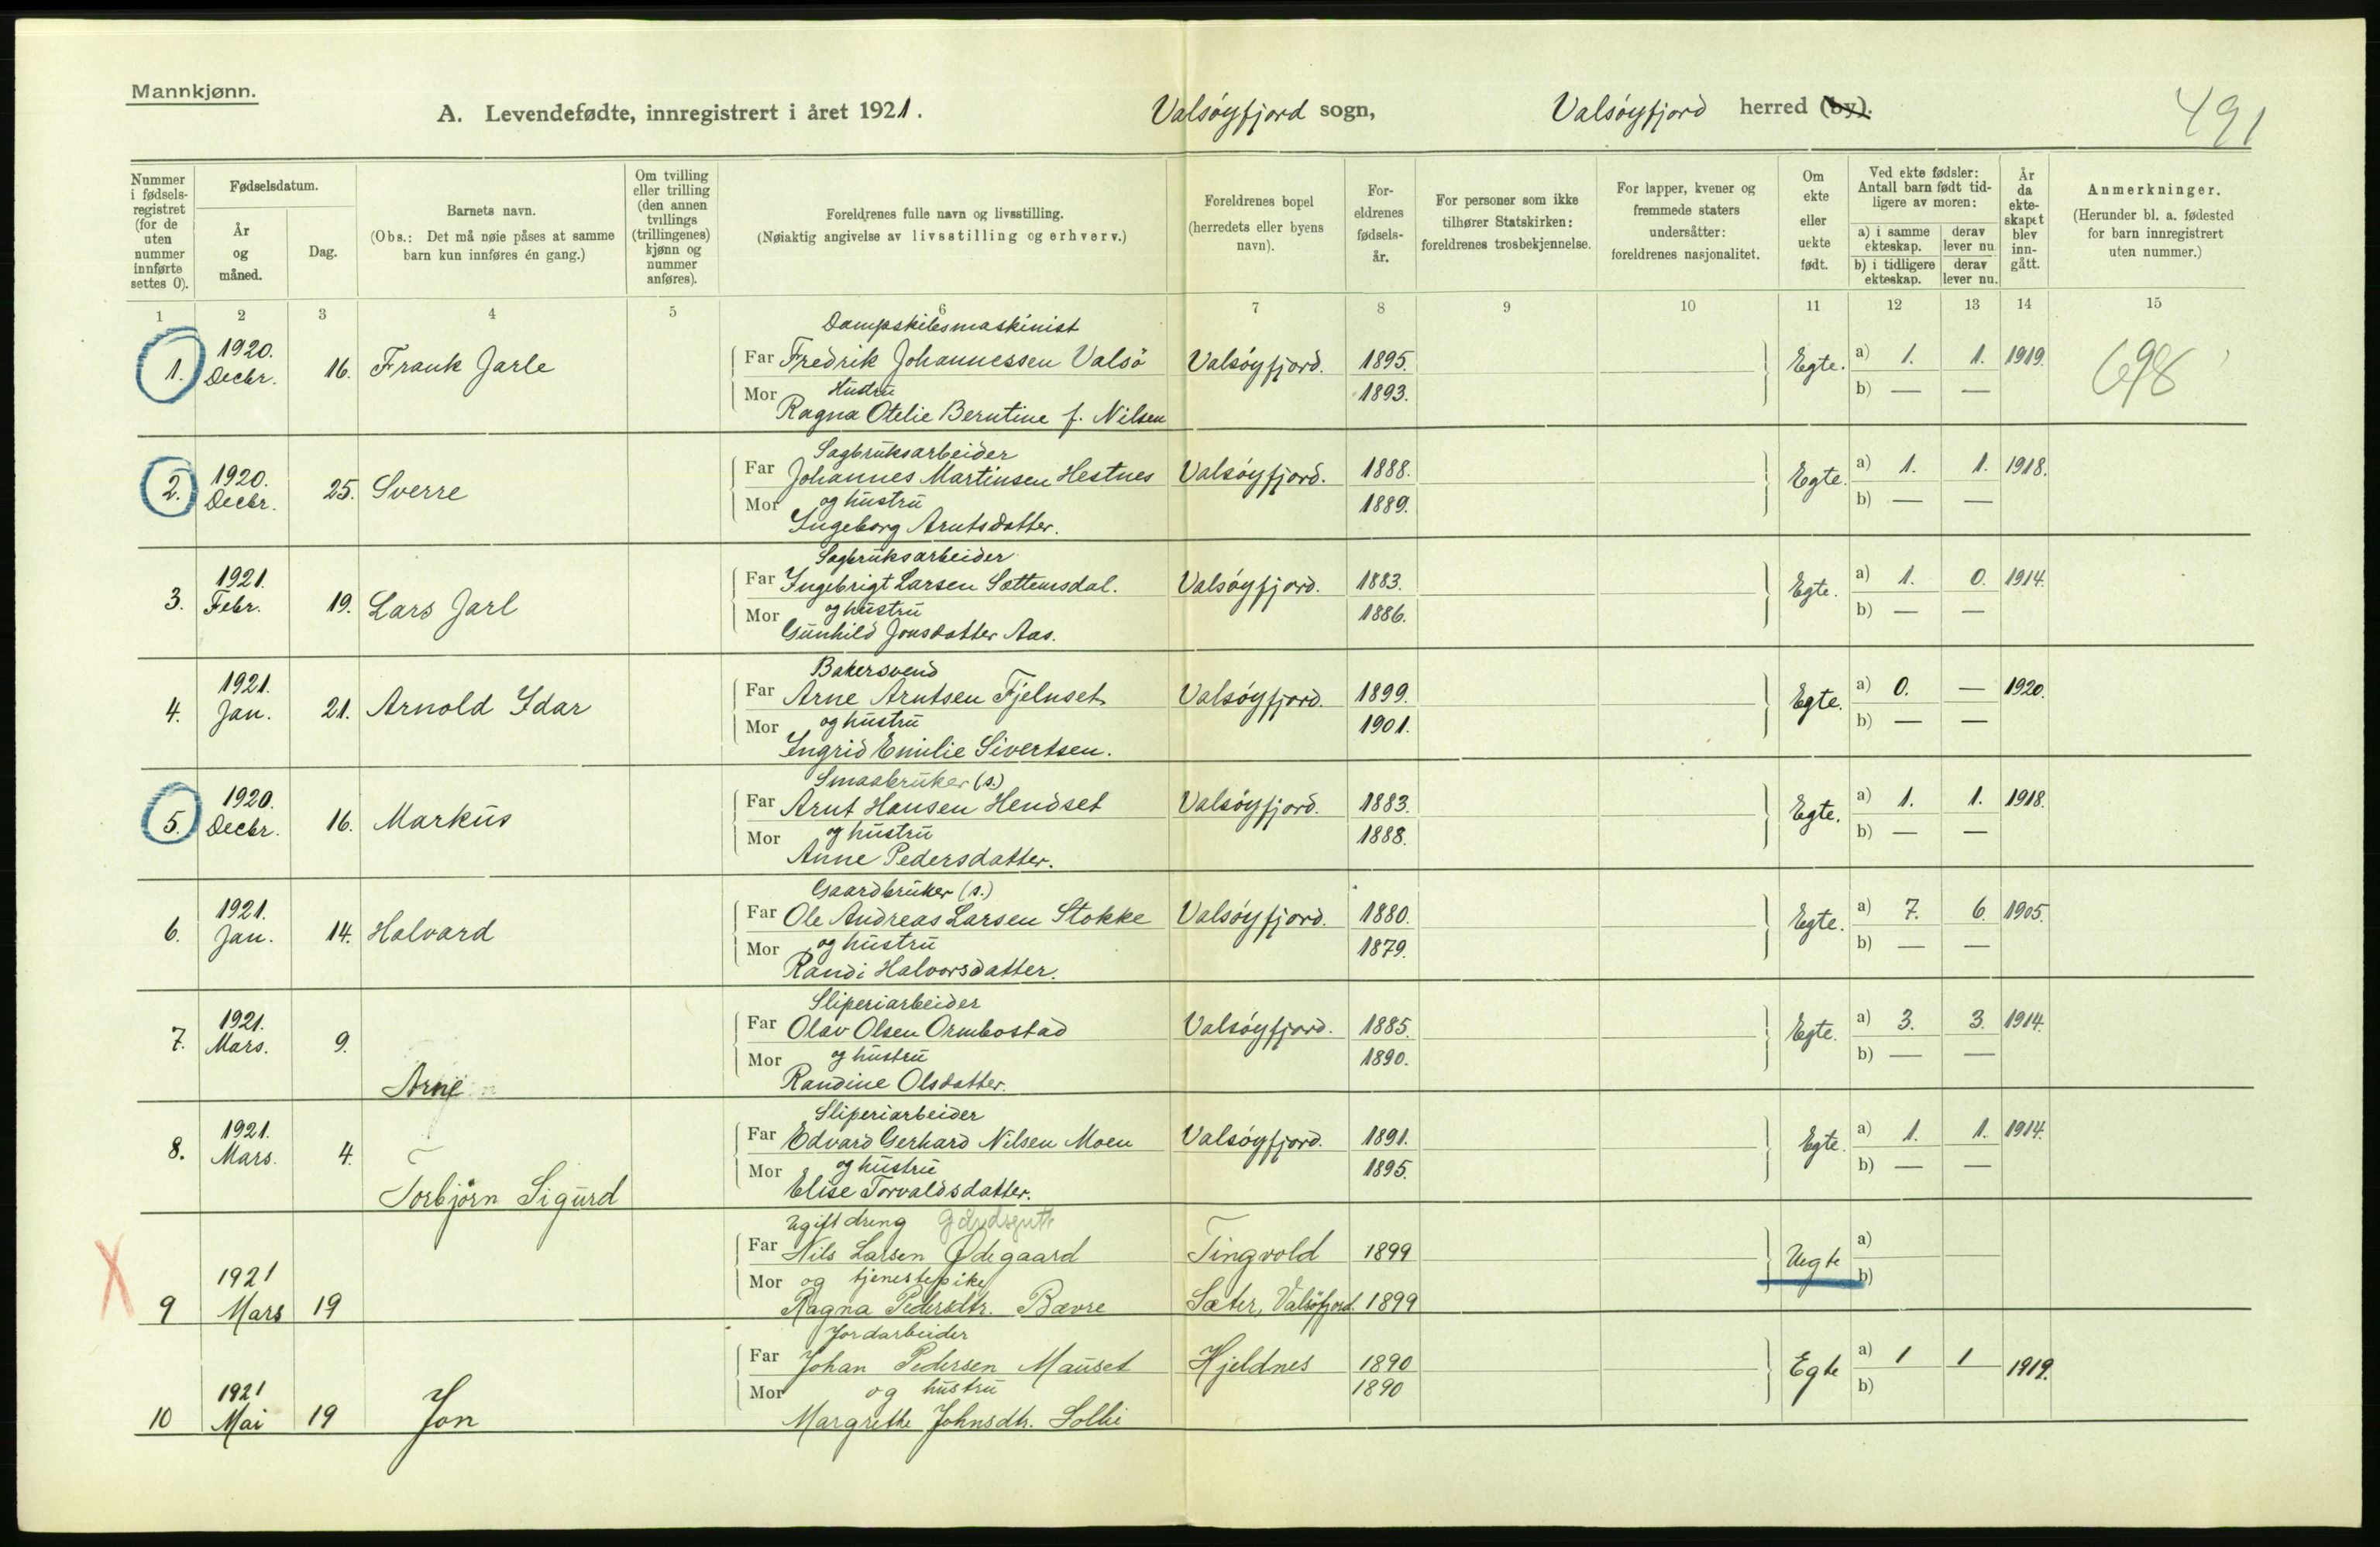 Mannkjønn.
A. Levendefødte, innregistrert i året 1921. Valsøyfjord sogn, Valsøyfjord herred (by).
491
Nummer i fødsels-registret (for de uten nummer innførte settes 0).
Fødselsdatum.
År og måned.
Dag.
Barnets navn.
(Obs.: Det må nøie påses at samme barn kun innføres én gang.)
Om tvilling eller trilling (den annen tvillings (trillingenes) kjønn og nummer anføres).
Foreldrenes fulle navn og livsstilling.
(Nøiaktig angivelse av livsstilling og erhverv.)
Foreldrenes bopel (herredets eller byens navn).
For-eldrenes fødsels-år.
For personer som ikke tilhører Statskirken: foreldrenes trosbekjennelse.
For lapper, kvener og fremmede staters undersåtter: foreldrenes nasjonalitet.
Om ekte eller uekte født.
Ved ekte fødsler: Antall barn født tid-ligere av moren:
a) i samme ekteskap.
derav lever nu
b) i tidligere ekteskap.
derav lever nu.
År da ekte-skapet blev inn-gått.
Anmerkninger.
(Herunder bl. a. fødested for barn innregistrert uten nummer.)
1 2 3 4 5 6 7 8 9 10 11 12 13 14 15
Dampskibsmaskinist
1. 1920. Decbr. 16. Frank Jarle Far Fredrik Johannessen Valsö Valsøyfjord. 1895. Egte. a) 1. 1. 1919. 698
Mor Hustru 1893. b) — —
Ragna Otelie Berntine f. Nilsen
Sagbruksarbeider
2. 1920. Decbr. 25. Sverre Far Johannes Martinsen Hestnes Valsøyfjord. 1888. Egte. a) 1. 1. 1918.
Mor og hustru 1889. b) — —
Ingeborg Arntsdatter.
Sagbruksarbeider
3. 1921. Febr. 19. Lars Jarl Far Ingebrigt Larsen Sættemsdal. Valsøyfjord. 1883. Egte. a) 1. 0. 1914.
Mor og hustru 1886. b) — —
Gunhild Jonsdatter Aas.
Bakersvend
4. 1921. Jan. 21. Arnold Idar Far Arne Arntsen Fjelnset Valsøyfjord. 1899. Egte. a) 0. — 1920.
Mor og hustru 1901. b) — —
Ingrid Emilie Sivertsen.
Smaabruker (s.)
5. 1920. Decbr. 16. Markus Far Arnt Hansen Hendset Valsøyfjord. 1883. Egte. a) 1. 1. 1918.
Mor og hustru 1888. b) — —
Anne Pedersdatter.
Gaardbruker (s.)
6. 1921. Jan. 14. Halvard Far Ole Andreas Larsen Stokke Valsøyfjord. 1880. Egte. a) 7. 6. 1905.
Mor og hustru 1879. b) — —
Randi Halvorsdatter.
Sliperiarbeider
7. 1921. Mars. 9. Arne Far Olav Olsen Ormbostad Valsøyfjord. 1885. Egte. a) 3. 3. 1914.
Mor og hustru 1890. b) — —
Randine Olsdatter.
Sliperiarbeider
8. 1921. Mars. 4. Torbjørn Sigurd Far Edvard Gerhard Nilsen Moen Valsøyfjord. 1891. Egte. a) 1. 1. 1914.
Mor og hustru 1895. b) — —
Elise Torvaldsdatter.
Ugift dreng
X 9 1921 Mars 19 Far Nils Larsen Ødegaard Tingvold 1899 Uegte a)
Mor og tjenestepike b)
Ragna Pedersdtr. Bævre Sæter, Valsöfjord. 1899
Jordarbeider
10 1921 Mai 19 Jon Far Johan Pedersen Mauset Hjeldnes 1890 Egte a) 1 1 1919.
Mor og hustru 1890 b)
Margrethe Johnsdtr. Solli